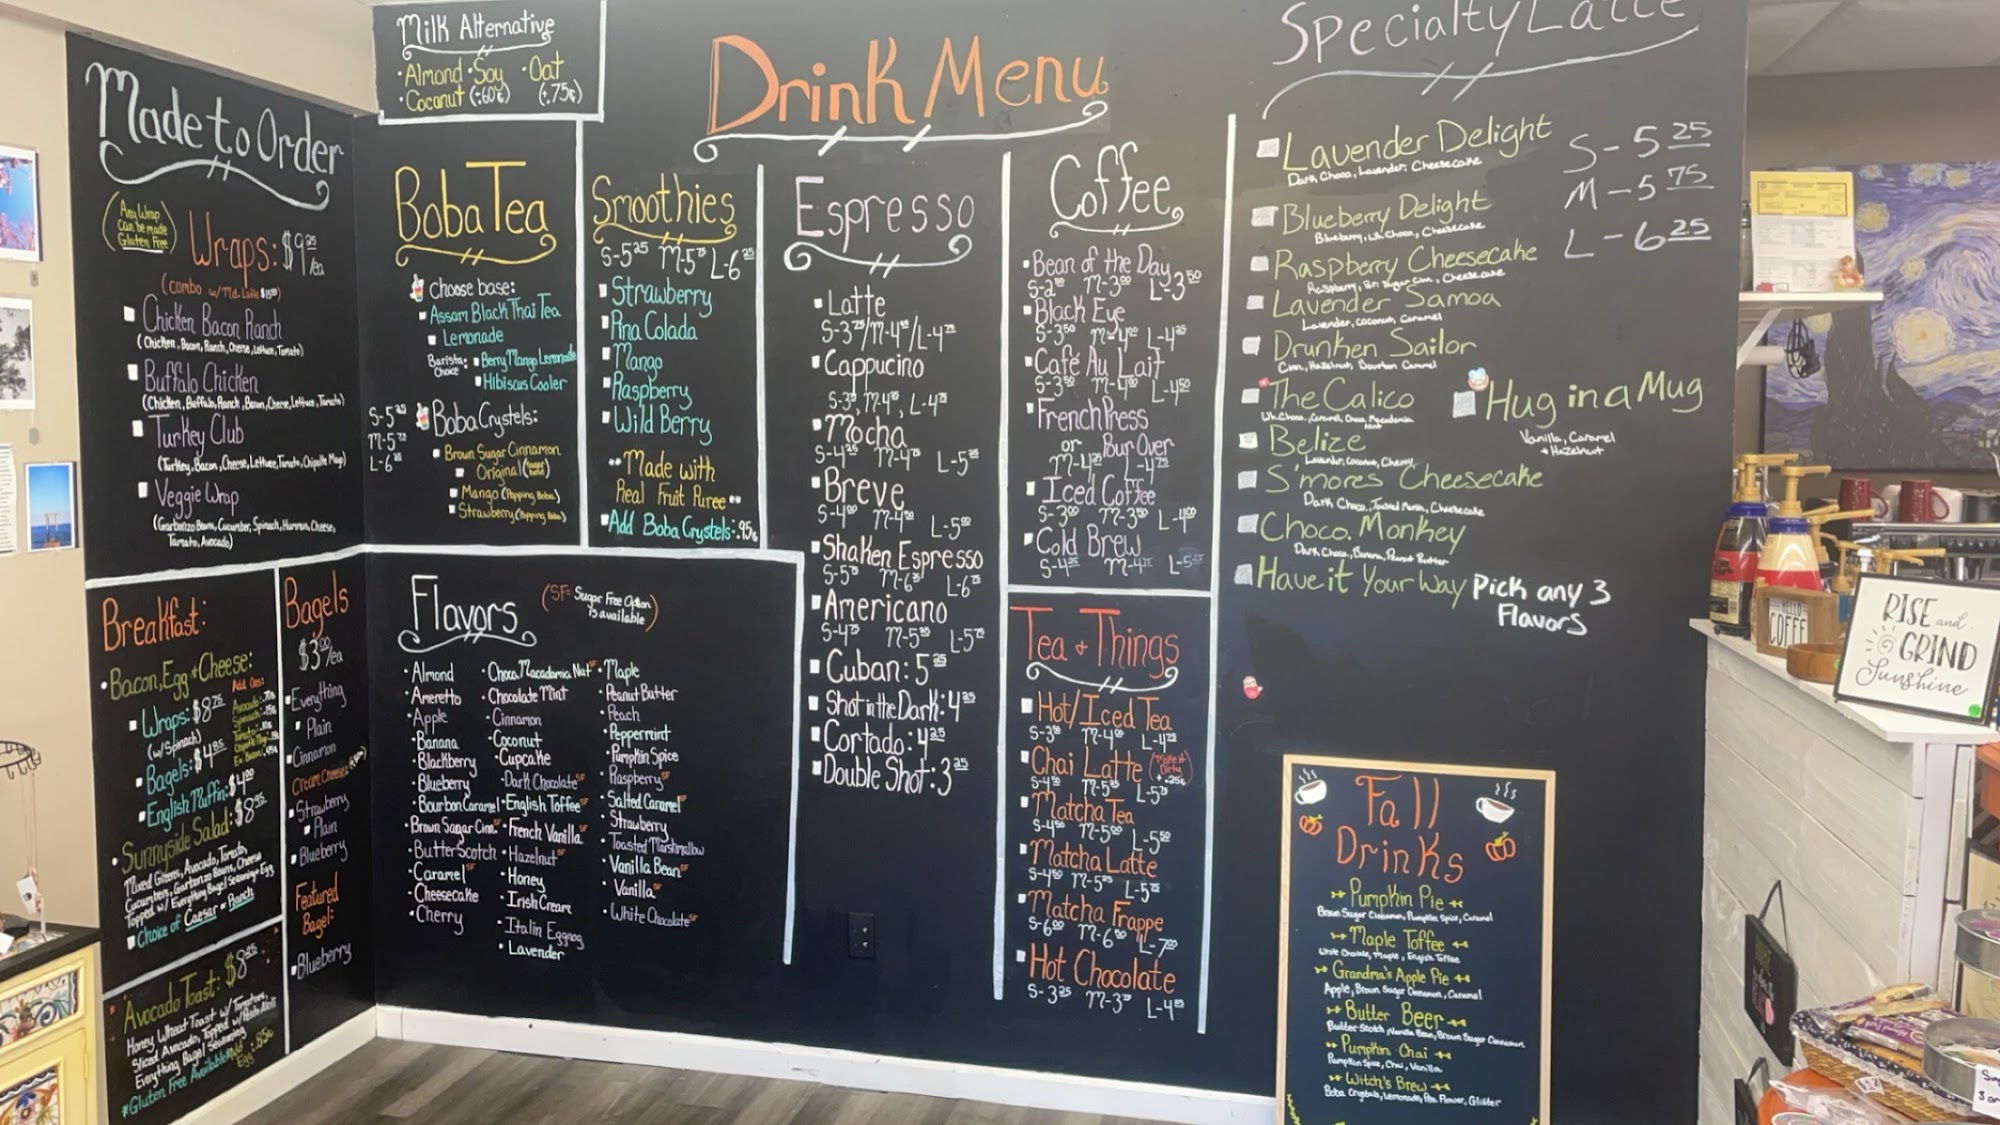 Milk Alternative
• Almond • Soy • Oat
• Coconut (+.60¢) (+.75¢)
Made to Order
Any Wrap
can be made
Gluten Free
Wraps: $9.25/ea
(Combo w/Md. Latte
Chicken Bacon Ranch
(Chicken, Bacon, Ranch, Cheese, Lettuce, Tomato)
Buffalo Chicken
(Chicken, Buffalo, Ranch, Bacon, Cheese, Lettuce, Tomato)
Turkey Club
(Turkey, Bacon, Cheese, Lettuce, Tomato, Chipotle Mayo)
Veggie Wrap
(Garbanzo Beans, Cucumber, Spinach, Hummus, Cheese,
Tomato, Avocado)
Breakfast:
• Bacon, Egg + Cheese:
Wraps: $8.75
(w/ Spinach)
Bagels: $4.85
English Muffin: $4.00
Add Ons:
Avocado:
Spinach:
Tomato:
Chipotle Mayo:
Ex. Bacon:
• Sunnyside Salad: $8.95
Mixed Greens, Avocado, Tomato,
Cucumbers, Garbanzo Beans, Cheese
Topped w/ Everything Bagel Seasoning + Egg
Choice of Caesar or Ranch
Avocado Toast: $8.25
Honey Wheat Toast w/ Tomatoes,
Sliced Avocado, Topped w/
Everything Bagel Seasoning
*Gluten Free Available Add Egg: .85¢
Bagels
$3.00/ea
Everything
Plain
Cinnamon
Cream Cheese:
Strawberry
Plain
Blueberry
Featured
Bagel:
Blueberry
Drink Menu
Boba Tea
Choose base:
Assam Black Thai Tea
Lemonade
Barista: Choice
Berry Mango Lemonade
Hibiscus Cooler
Boba Crystels:
Brown Sugar Cinnamon
Original
Mango (Popping Boba)
Strawberry (Popping Boba)
S-5.25
M-5.75
L-6.25
Smoothies
S-5.25 M-5.75 L-6.25
Strawberry
Pina Colada
Mango
Raspberry
Wild Berry
**Made with
Real Fruit Puree**
Add Boba Crystels: .95¢
Flavors
(SF= Sugar Free Option
is available)
• Almond
• Ameretto
• Apple
• Banana
• Blackberry
• Blueberry
• Bourbon Caramel
• Brown Sugar Cinn. SF
• ButterScotch
• Caramel SF
• Cheesecake
• Cherry
• Choco. Macadamia Nut SF
• Chocolate Mint
• Cinnamon
• Coconut
• Cupcake
• Dark Chocolate SF
• English Toffee SF
• French Vanilla SF
• Hazelnut SF
• Honey
• Irish Cream
• Italin Eggnog
• Lavender
• Maple
• Peanut Butter
• Peach
• Peppermint
• Pumpkin Spice
• Raspberry SF
• Salted Caramel SF
• Strawberry
• Toasted Marshmallow
• Vanilla Bean SF
• Vanilla SF
• White Chocolate SF
Espresso
Latte
S-3.75/M-4.25/L-4.75
Cappucino
S-3.75, M-4.25, L-4.75
Mocha
S-4.25 M-4.75 L-5.25
Breve
S-4.00 M-4.50 L-5.00
Shaken Espresso
S-5.75 M-6.25 L-6.75
Americano
S-4.75 M-5.25 L-5.75
Cuban: 5.25
Shot in the Dark: 4.25
Cortado: 4.25
Double Shot: 3.25
Coffee
Bean of the Day
S-2.50 M-3.00 L-3.50
Black Eye
S-3.50 M-4.00 L-4.25
Café Au Lait
S-3.50 M-4.00 L-4.50
French Press
or Pour Over
M-4.25 L-4.75
Iced Coffee
S-3.00 M-3.50 L-4.00
Cold Brew
S-4.25 M-4.75 L-5.25
Tea + Things
Hot/Iced Tea
S-3.50 M-4.00 L-4.75
Chai Latte (Make it Dirty +.25¢)
S-4.50 M-5.25 L-5.75
Matcha Tea
S-4.50 M-5.00 L-5.50
Matcha Latte
S-4.50 M-5.25 L-5.75
Matcha Frappe
S-6.00 M-6.50 L-7.00
Hot Chocolate
S-3.25 M-3.75 L-4.25
Specialty Latte
S-5.25
M-5.75
L-6.25
Lavender Delight
Dark Choco, Lavender, Cheesecake
Blueberry Delight
Blueberry, Wh. Choco, Cheesecake
Raspberry Cheesecake
Raspberry, Brn Sugar Cinn, Cheesecake
Lavender Samoa
Lavender, coconut, Caramel
Drunken Sailor
Cinn, Hazelnut, Bourbon Caramel
The Calico
Wh. Choco, Caramel, Choco Macadamia Nut
Hug in a Mug
Vanilla, Caramel
+ Hazelnut
Belize
Lavender, Coconut, Cherry
S'mores Cheesecake
Dark Choco, Toasted Marsh, Cheesecake
Choco. Monkey
Dark Choco, Banana, Peanut Butter
Have it Your Way Pick any 3
Flavors
Fall
Drinks
Pumpkin Pie
Brown Sugar Cinnamon, Pumpkin Spice, Caramel
Maple Toffee
White Chocolate, Maple, English Toffee
Grandma's Apple Pie
Apple, Brown Sugar Cinnamon, Caramel
Butter Beer
Butter Scotch, Vanilla Bean, Brown Sugar Cinnamon
Pumpkin Chai
Pumpkin Spice, Chai, Vanilla
Witch's Brew
Boba Crystals, Lemonade, Pea Flower, Glitter
HELLO
COFFEE
RISE and
GRIND
Sunshine